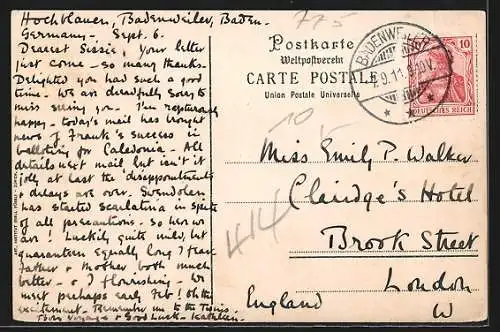 Hochblauen, Badenweiler, Baden.
Germany - Sept. 6.
Dearest Sissie, Your letter
just come - so many thanks -
Delighted you had such a good
time. We are dreadfully sorry to
miss seeing you. I'm rapturously
happy - today's mail has brought
news of Frank's success in
balloting for Caledonia - All
details next mail but isn't it
jolly at last the disappointments
& delays are over. Gwendolen
has started scarlatina in spite
of all precautions. So here we
are! Luckily quite mild, but
quarantine equally long I fear.
Father & Mother both much
better - & I flourishing - We
meet perhaps early Feb! Oh the
excitement. Remember me to the
Bon Voyage & Good Luck - Kathleen.
775
Postkarte
Weltpostverein
CARTE POSTALE
Union Postale Universelle
BADENWEILER
9.11.
10
DEUTSCHES REICH
10
Miss Emily P. Walker
Claridge's Hotel
Brook Street
London
England W
414